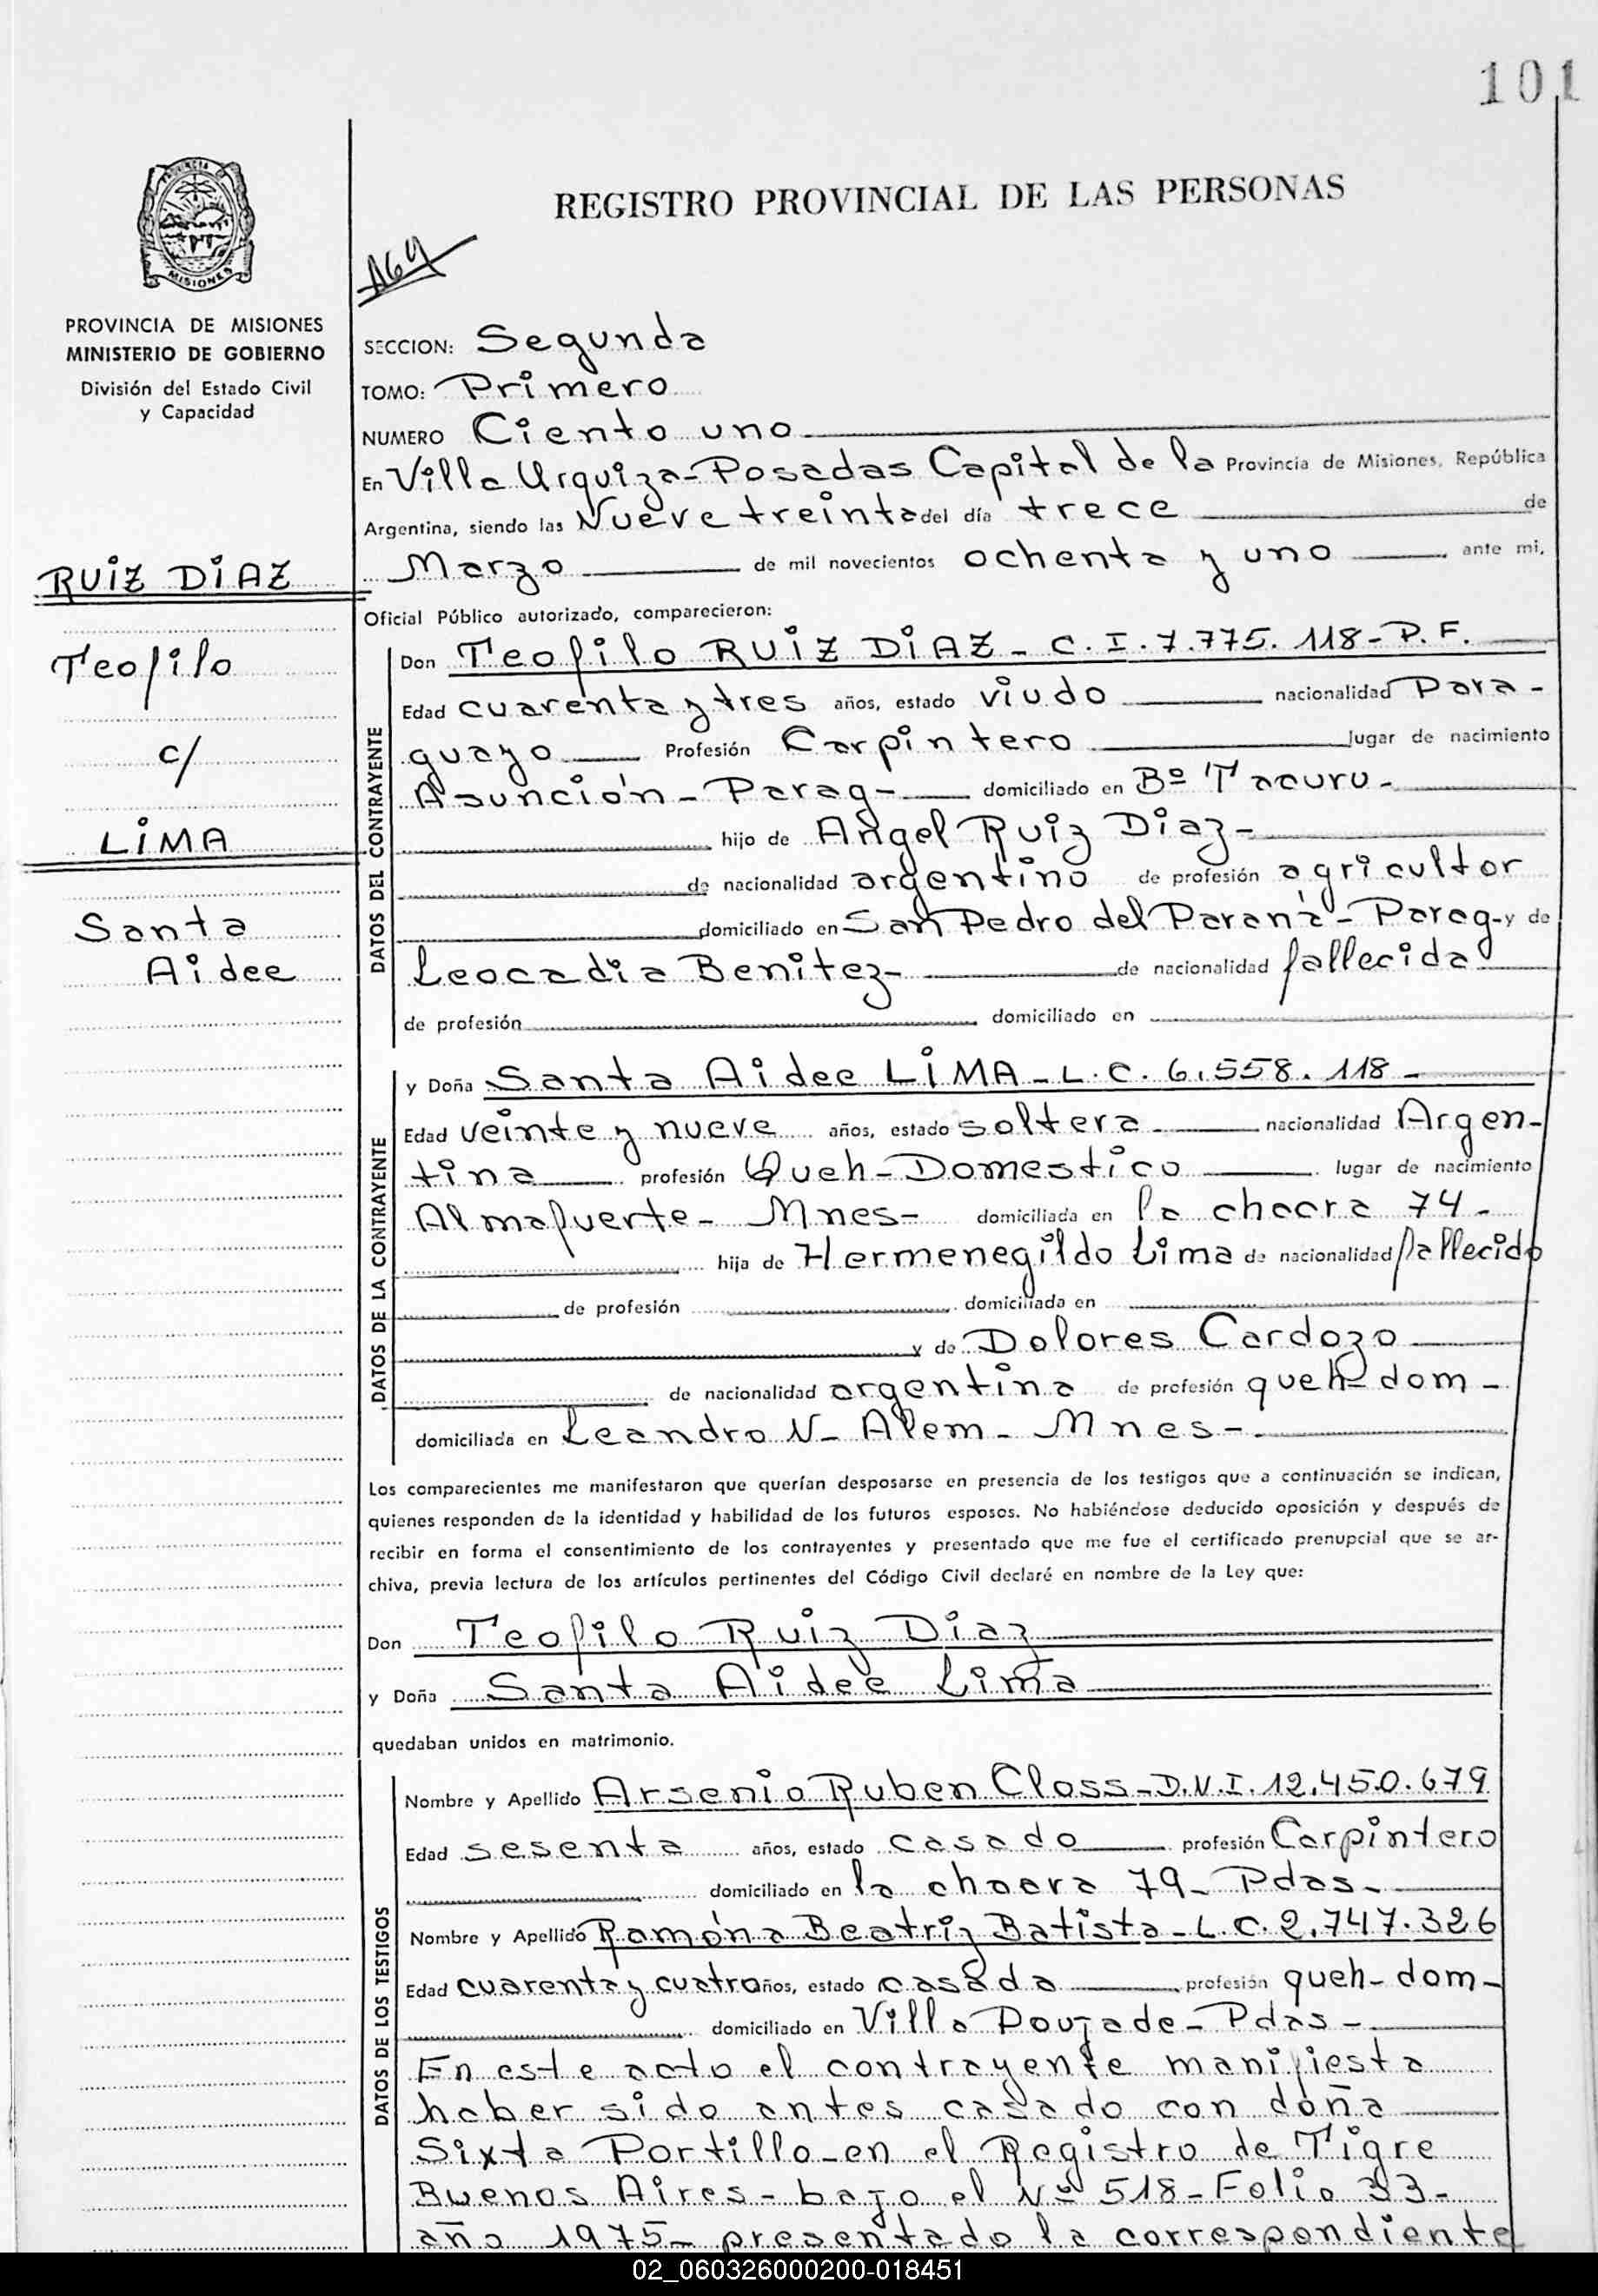 101
REGISTRO PROVINCIAL DE LAS PERSONAS
PROVINCIA
MISIONES
PROVINCIA DE MISIONES
MINISTERIO DE GOBIERNO
División del Estado Civil
y Capacidad
RUIZ DIAZ
Teofilo
c/
LIMA
Santa
Aidee
SECCION: Segunda
TOMO: Primero
NUMERO Ciento uno
En Villa Urquiza - Posadas Capital de la Provincia de Misiones, República
Argentina, siendo las Nueve treinta del día trece de
Marzo de mil novecientos ochenta y uno ante mi,
Oficial Público autorizado, comparecieron:
DATOS DEL CONTRAYENTE
Don Teofilo RUIZ DIAZ - C.I. 7.775.118 - P.F.
Edad cuarenta y tres años, estado viudo nacionalidad Para-
guayo Profesión Carpintero lugar de nacimiento
Asunción - Parag - domiciliado en Bº Tacuru -
hijo de Angel Ruiz Diaz -
de nacionalidad argentino de profesión agricultor
domiciliado en San Pedro del Paraná - Parag - y de
Leocadia Benitez - de nacionalidad fallecida
de profesión domiciliado en
DATOS DE LA CONTRAYENTE
y Doña Santa Aidee LIMA - L.C. 6.558.118 -
Edad veinte y nueve años, estado soltera nacionalidad Argen-
tina profesión Queh - Domestico lugar de nacimiento
Almafuerte - Mnes - domiciliada en la chacra 74 -
hija de Hermenegildo Lima de nacionalidad fallecido
de profesión domiciliada en
y de Dolores Cardozo
de nacionalidad argentina de profesión queh - dom -
domiciliada en Leandro N - Alem - Mnes -
Los comparecientes me manifestaron que querían desposarse en presencia de los testigos que a continuación se indican,
quienes responden de la identidad y habilidad de los futuros esposos. No habiéndose deducido oposición y después de
recibir en forma el consentimiento de los contrayentes y presentado que me fue el certificado prenupcial que se ar-
chiva, previa lectura de los artículos pertinentes del Código Civil declaré en nombre de la Ley que:
Don Teofilo Ruiz Diaz
y Doña Santa Aidee Lima
quedaban unidos en matrimonio.
DATOS DE LOS TESTIGOS
Nombre y Apellido Arsenio Ruben Closs - D.N.I. 12.450.679
Edad sesenta años, estado casado profesión Carpintero
domiciliado en la chacra 79 - Pdas -
Nombre y Apellido Ramóna Beatriz Batista - L.C. 2.747.326
Edad cuarenta y cuatro años, estado casada profesión queh - dom -
domiciliado en Villa Poujade - Pdas -
En este acto el contrayente manifiesta
haber sido antes casado con doña
Sixta Portillo - en el Registro de Tigre
Buenos Aires - bajo el Nº 518 - Folio 33 -
año 1975 - presentado la correspondiente
02_060326000200-018451